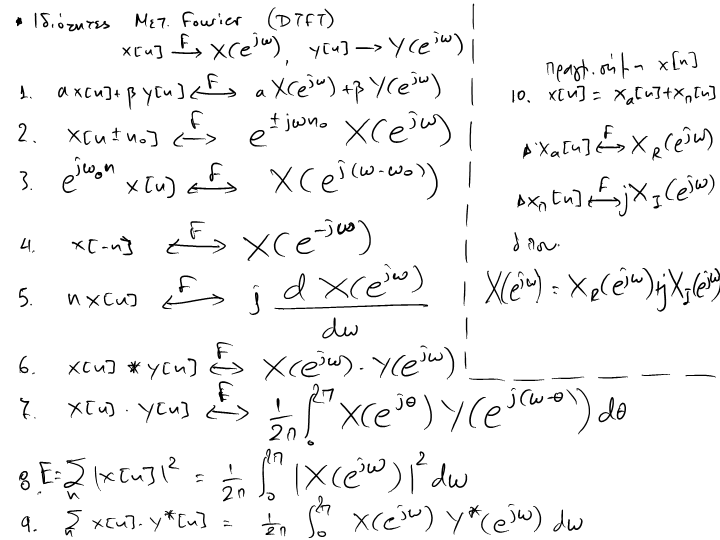 • Ιδιότητες Μετ. Fourier (DTFT)
x[n] F→ X(e^{jω}), y[n] → Y(e^{jω})
1. αx[n]+βy[n] F↔ αX(e^{jω})+βY(e^{jω})
2. x[n±n₀] F↔ e^{±jωn₀} X(e^{jω})
3. e^{jω₀n} x[n] F↔ X(e^{j(ω-ω₀)})
4. x[-n] F↔ X(e^{-jω})
5. nx[n] F↔ j dX(e^{jω})/dω
6. x[n] * y[n] F↔ X(e^{jω}) · Y(e^{jω})
7. x[n] · y[n] F↔ 1/2π ∫₀^{2π} X(e^{jθ}) Y(e^{j(ω-θ)}) dθ
8. E=∑ₙ |x[n]|² = 1/2π ∫₀^{2π} |X(e^{jω})|² dω
9. ∑ₙ x[n]·y*[n] = 1/2π ∫₀^{2π} X(e^{jω}) Y*(e^{jω}) dω
x[n]
10. x[n] = xₐ[n]+xₙ[n]
xₐ[n] F↔ X_R(e^{jω})
xₙ[n] F↔ jX_I(e^{jω})
όπου
X(e^{jω}) = X_R(e^{jω})+jX_I(e^{jω})